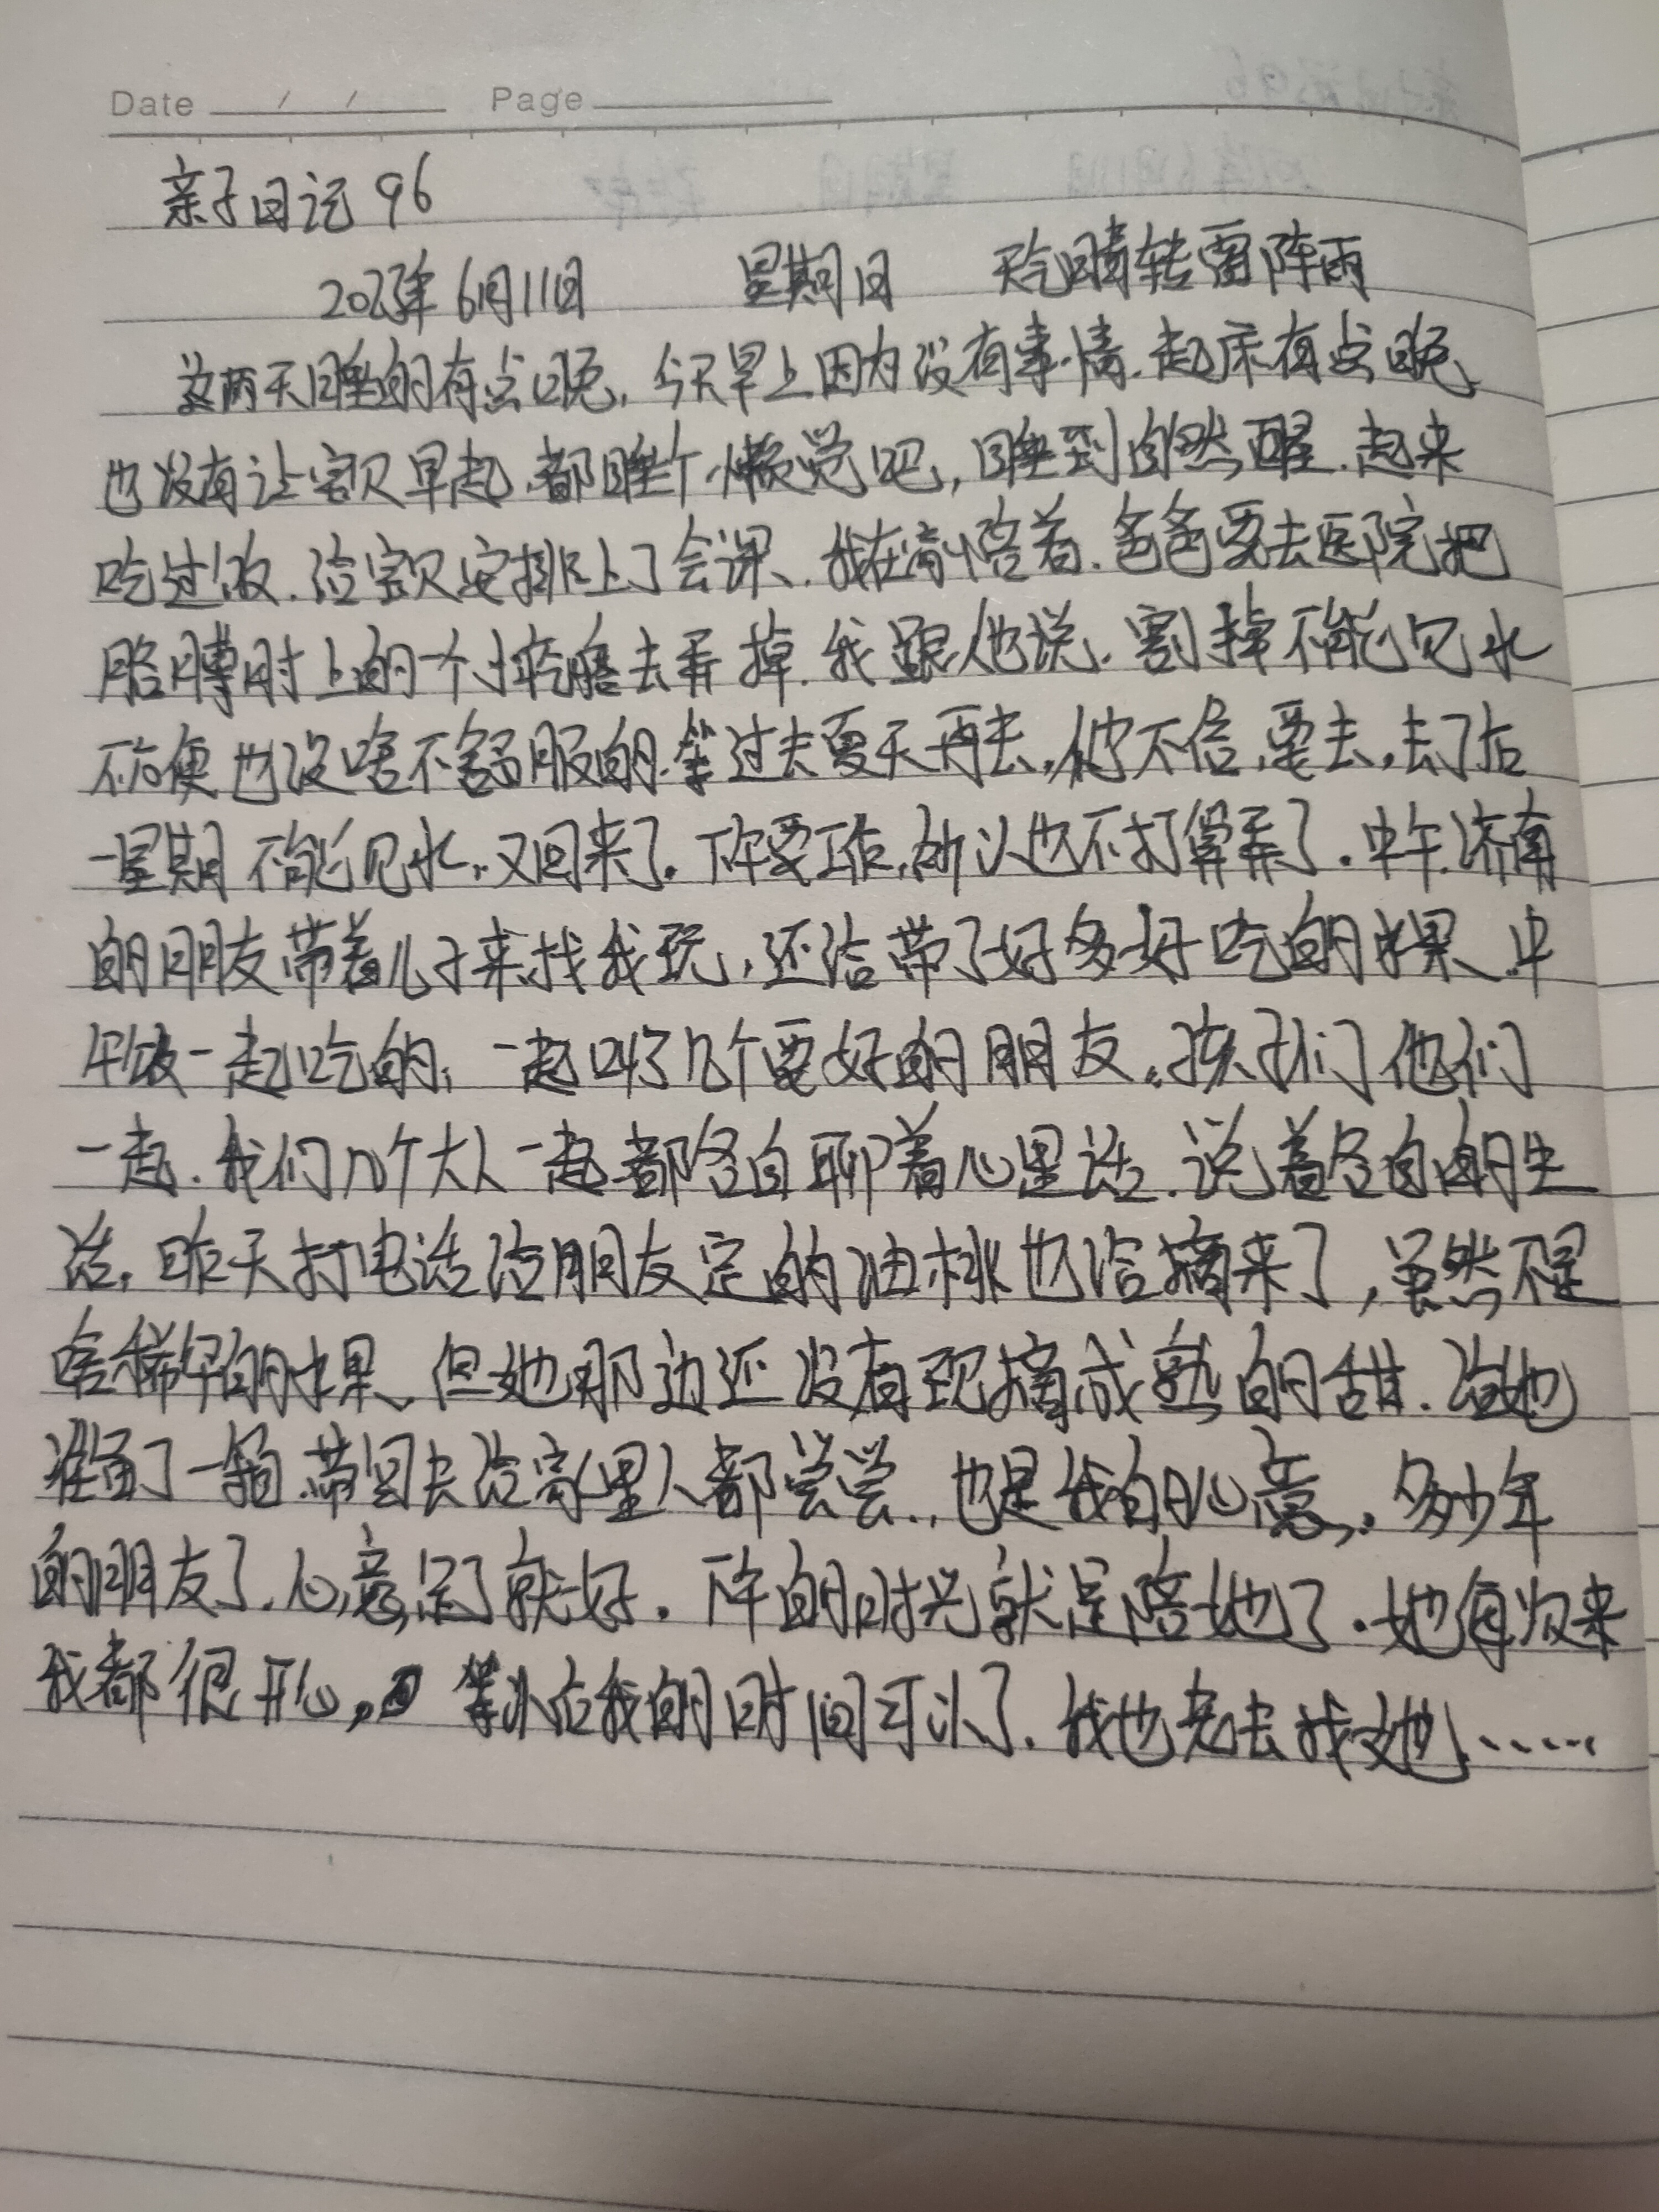 Date / / Page
亲子日记 96
2023年6月11日 星期日 天气晴转雷阵雨
这两天睡的有点晚，今天早上因为没有事情.起床有点晚
也没有让宝贝早起.都睡个懒觉吧，睡到自然醒.起来
吃过饭.给宝贝安排上了会课.我在背悟着.爸爸要去医院把
胳膊肘上的一个去弄掉.我跟他说.割掉不能见水
不方便也没啥不舒服的.等过去夏天再去，他不信，要去，去了后
一星期不能见水，又回来了.下午要工作，所以也不打算弄了.中午.济南
的朋友带着儿子来找我玩，还给带了好多好吃的水果.中
午饭一起吃的，一起叫了几个要好的朋友。孩子们他们
一起.我们几个大人一起都各自聊着心里话.说着各自的生
活，昨天打电话给朋友定的油桃也给摘来了，虽然不是
啥稀罕的水果.但她那边还没有现摘成熟的甜.给她
准备了一箱.带回去给家里人都尝尝.，也是我的心意，多少年
的朋友了.心意完了就好.下午的时光就是陪她了.她每次来
我都很开心，等以后我的时间可以了.我也先去找她......